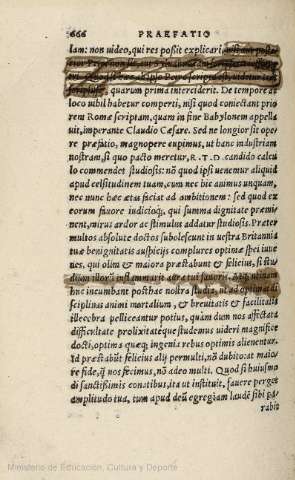 666 PRAEFATIO
lam: non uideo, qui res possit explicari,
quarum prima interciderit. De tempore ac
loco nihil habetur comperti, nisi quod coniectant prio
rem Romę scriptam, quam in fine Babylonem appella
uit, imperante Claudio Cęsare. Sed ne longior sit ope
re præfatio, magnopere cupimus, ut hanc industriam
nostram, si quo pacto meretur, R. T. D. candido calcu
lo commendet studiosis: nõ quod ipsi uenemur aliquid
apud celsitudinem tuam, cum nec hic animus unquam,
nec nunc hæc ætas faciat ad ambitionem: sed quod ex
eorum fauore iudicioq́;, qui summa dignitate præmi
nent, mirus ardor ac stimulus addatur studiosis. Præter
multos absolute doctos subolescunt in uestra Britannia
tuæ benignitatis auspicijs complures optimæ spei iuue
nes, qui olim & maiora præstabunt & felicius, si stu
dium illorũ inflammarit aura tui fauoris.
huc incumbant posthac nostra studia, ut ad optimas di
sciplinas animi mortalium, & breuitatis & facilitatis
illecebra pelliceantur potius, quàm dum nos affectata
difficultate prolixitateq́ue studemus uideri magnifice
docti, optima quæq; ingenia rebus optimis alienentur.
Id præstabũt felicius alij permulti, nõ dubito: at maio/
re fide, q̃ nos fecimus, nõ adeo multi. Quod si huiusmo
di sanctissimis conatibus, ita ut instituit, fauere perget
amplitudo tua, tum apud deũ egregiam laudẽ sibi pa/
rabit
Ministerio de Educación, Cultura y Deporte